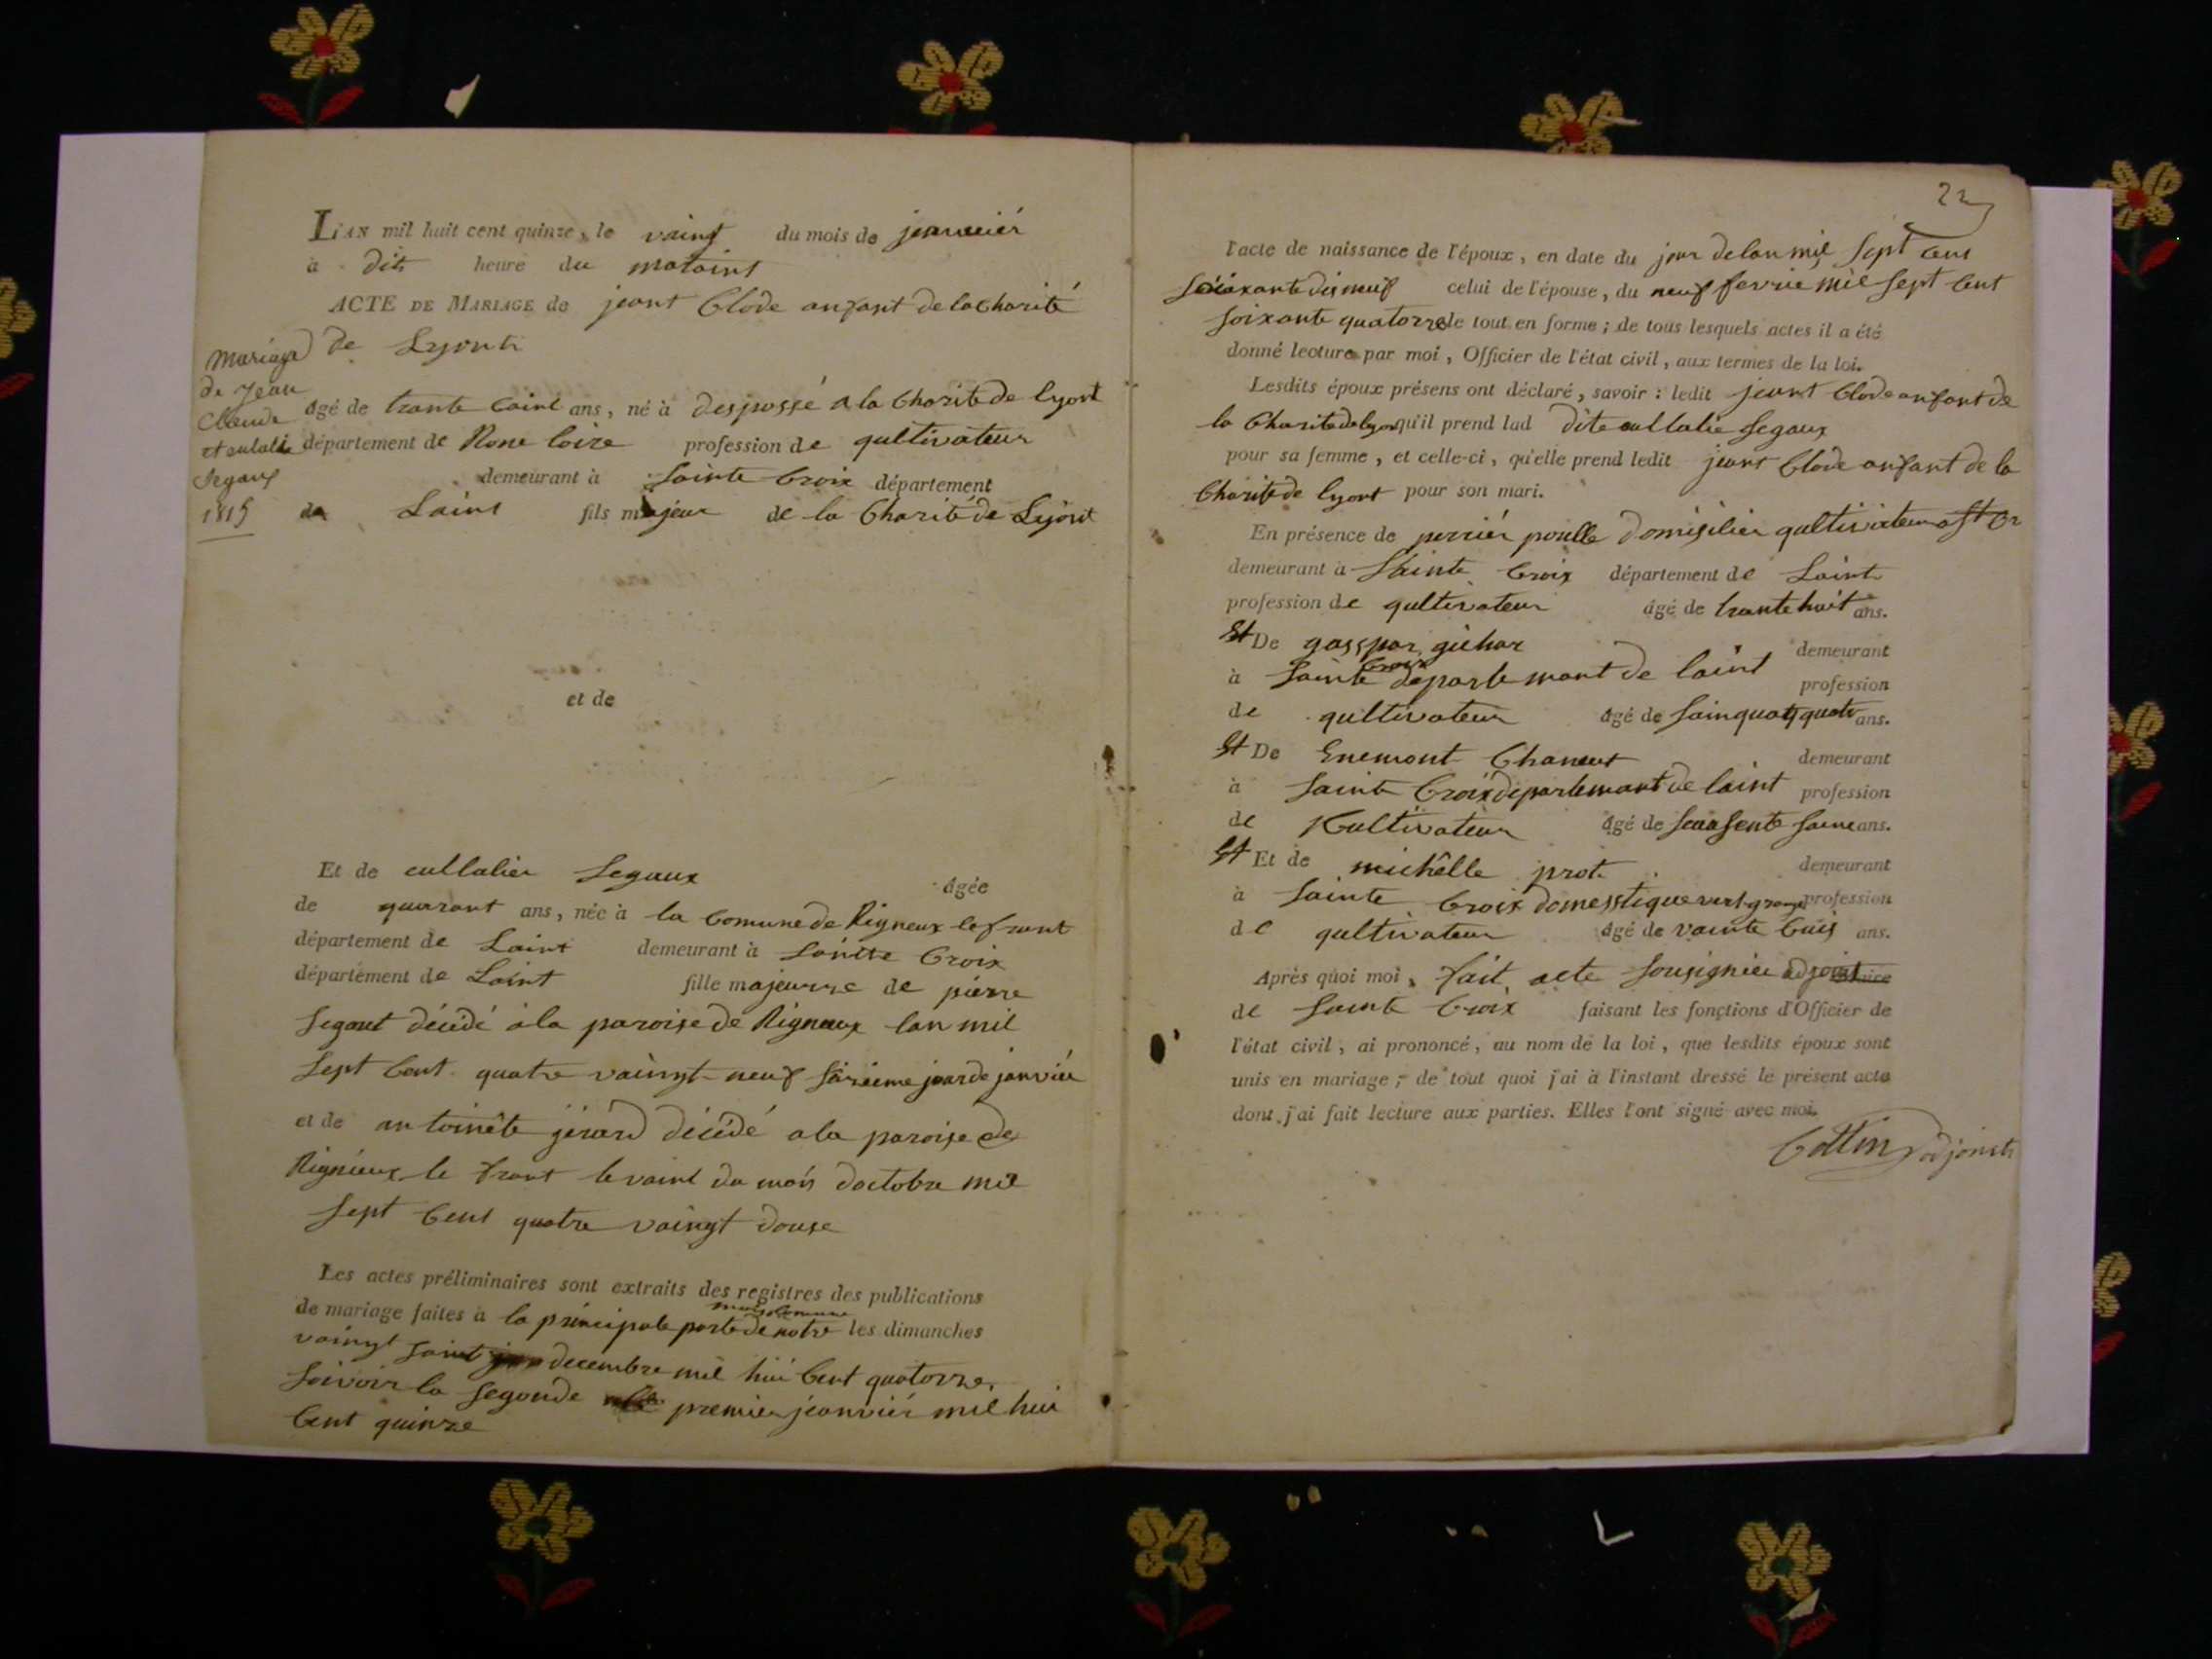 L'AN mil huit cent quinze, le vaingt du mois de jeanviér
à dit heure du mataint
ACTE DE MARIAGE de jeant Clode anfant de la Charité
de Lyont
Mariage
de Jean
Claude
et eulalie
Segaux
1815
âgé de trante Caint ans, né à despossé a la Charité de lyont
département de Rone loire profession de qultivateur
demeurant à Sainte Croix département
de Laint fils majeur de la Charité de Lyont
et de
Et de eullalier Segaux âgée
de quarant ans, née à la Comune de Rigneux le frant
département de Laint demeurant à Sainte Croix
département de Laint fille majeurre de piérre
Segaut décédé à la paroise de Rigneux lan mil
Sept Cent quatre vaingt neuf Saisieme jour de janviér
et de antoinéte jérard décédé a la paroise de
Rignieux le frant le vaint du mois doctobre mil
Sept Cent quatre vaingt douse
Les actes préliminaires sont extraits des registres des publications
de mariage faites à la principale porte de notre les dimanches
vaingt Saint decembre mil hui Cent quatorze
Saivoir la Segonde premier jeanviér mil hui
Cent quinze
22
l'acte de naissance de l'époux, en date du jour de lan mil Sept Cent
Soixante dis neuf celui de l'épouse, du neuf fevrié mil Sept Cent
Soixante quatorze le tout en forme; de tous lesquels actes il a été
donné lecture par moi, Officier de l'état civil, aux termes de la loi.
Lesdits époux présens ont déclaré, savoir: ledit jeant Clode anfant de
la Charité de lyon qu'il prend lad dite eullalie Segaux
pour sa femme, et celle-ci, qu'elle prend ledit jeant Clode anfant de la
Charité de lyont pour son mari.
En présence de perriér poulle domisilier qultivateur a St Cr
demeurant à Sainte Croix département de Laint
profession de qultivateur âgé de trante huit ans.
Et De gasspar gichar demeurant
à Sainte Croix departemant de laint profession
de qultivateur âgé de Sainquate quatr ans.
Et De Enemont Chanent demeurant
à Sainte Croix departemant de laint profession
de Kultivateur âgé de ans.
Et Et de michélle prot demeurant
à Sainte Croix domesstique profession
de qultivateur âgé de vainte Cuis ans.
Après quoi moi, fait acte Sousigniér adjoint
de Sainte Croix faisant les fonctions d'Officier de
l'état civil, ai prononcé, au nom de la loi, que lesdits époux sont
unis en mariage; de tout quoi j'ai à l'instant dressé le présent acte
dont j'ai fait lecture aux parties. Elles l'ont signé avec moi.
Cottin adjoint